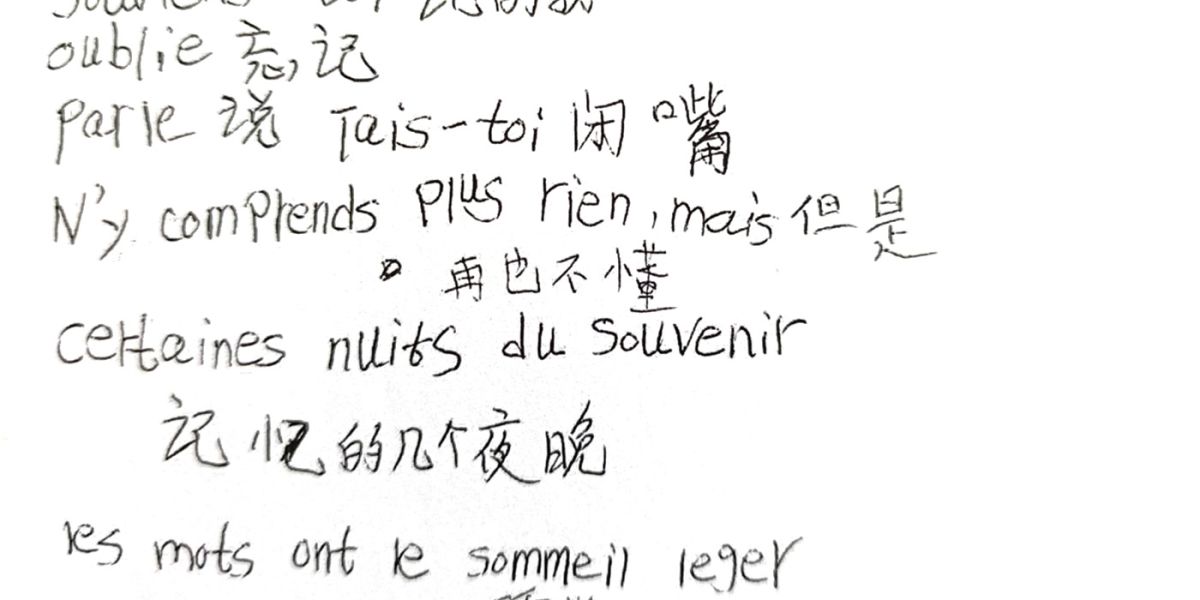 oublie 忘记
parle 说 Tais-toi 闭嘴
N'y comprends plus rien, mais 但是
再也不懂
certaines nuits du souvenir
记忆的几个夜晚
les mots ont le sommeil leger